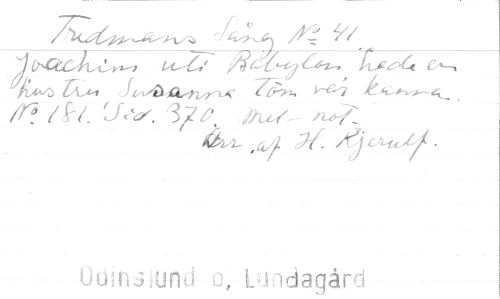 Fredmans Sång No 41.
Joachim uti Babylon hade en
hustru Susanna töm vår kanna.
No. 181. Sid. 370. mel- not.
Arr. af H. Kjerulf.
Odinslund o, Lundagård